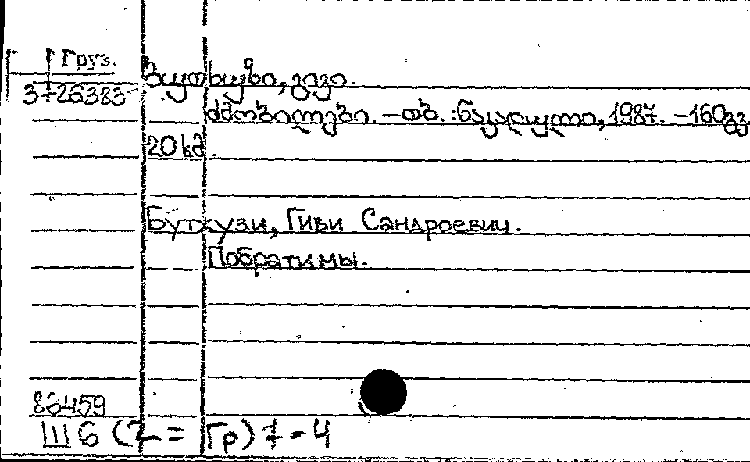 Груз.
3-26383
ბუთხუზი, გივი.
ძმობილები. – თბ. : ნაკადული, 1987. – 160გვ.
20 კპ
Бутхузи, Гиви Сандроевич.
Побратимы.
83459
Ш6 (2 = Гр) 7-4